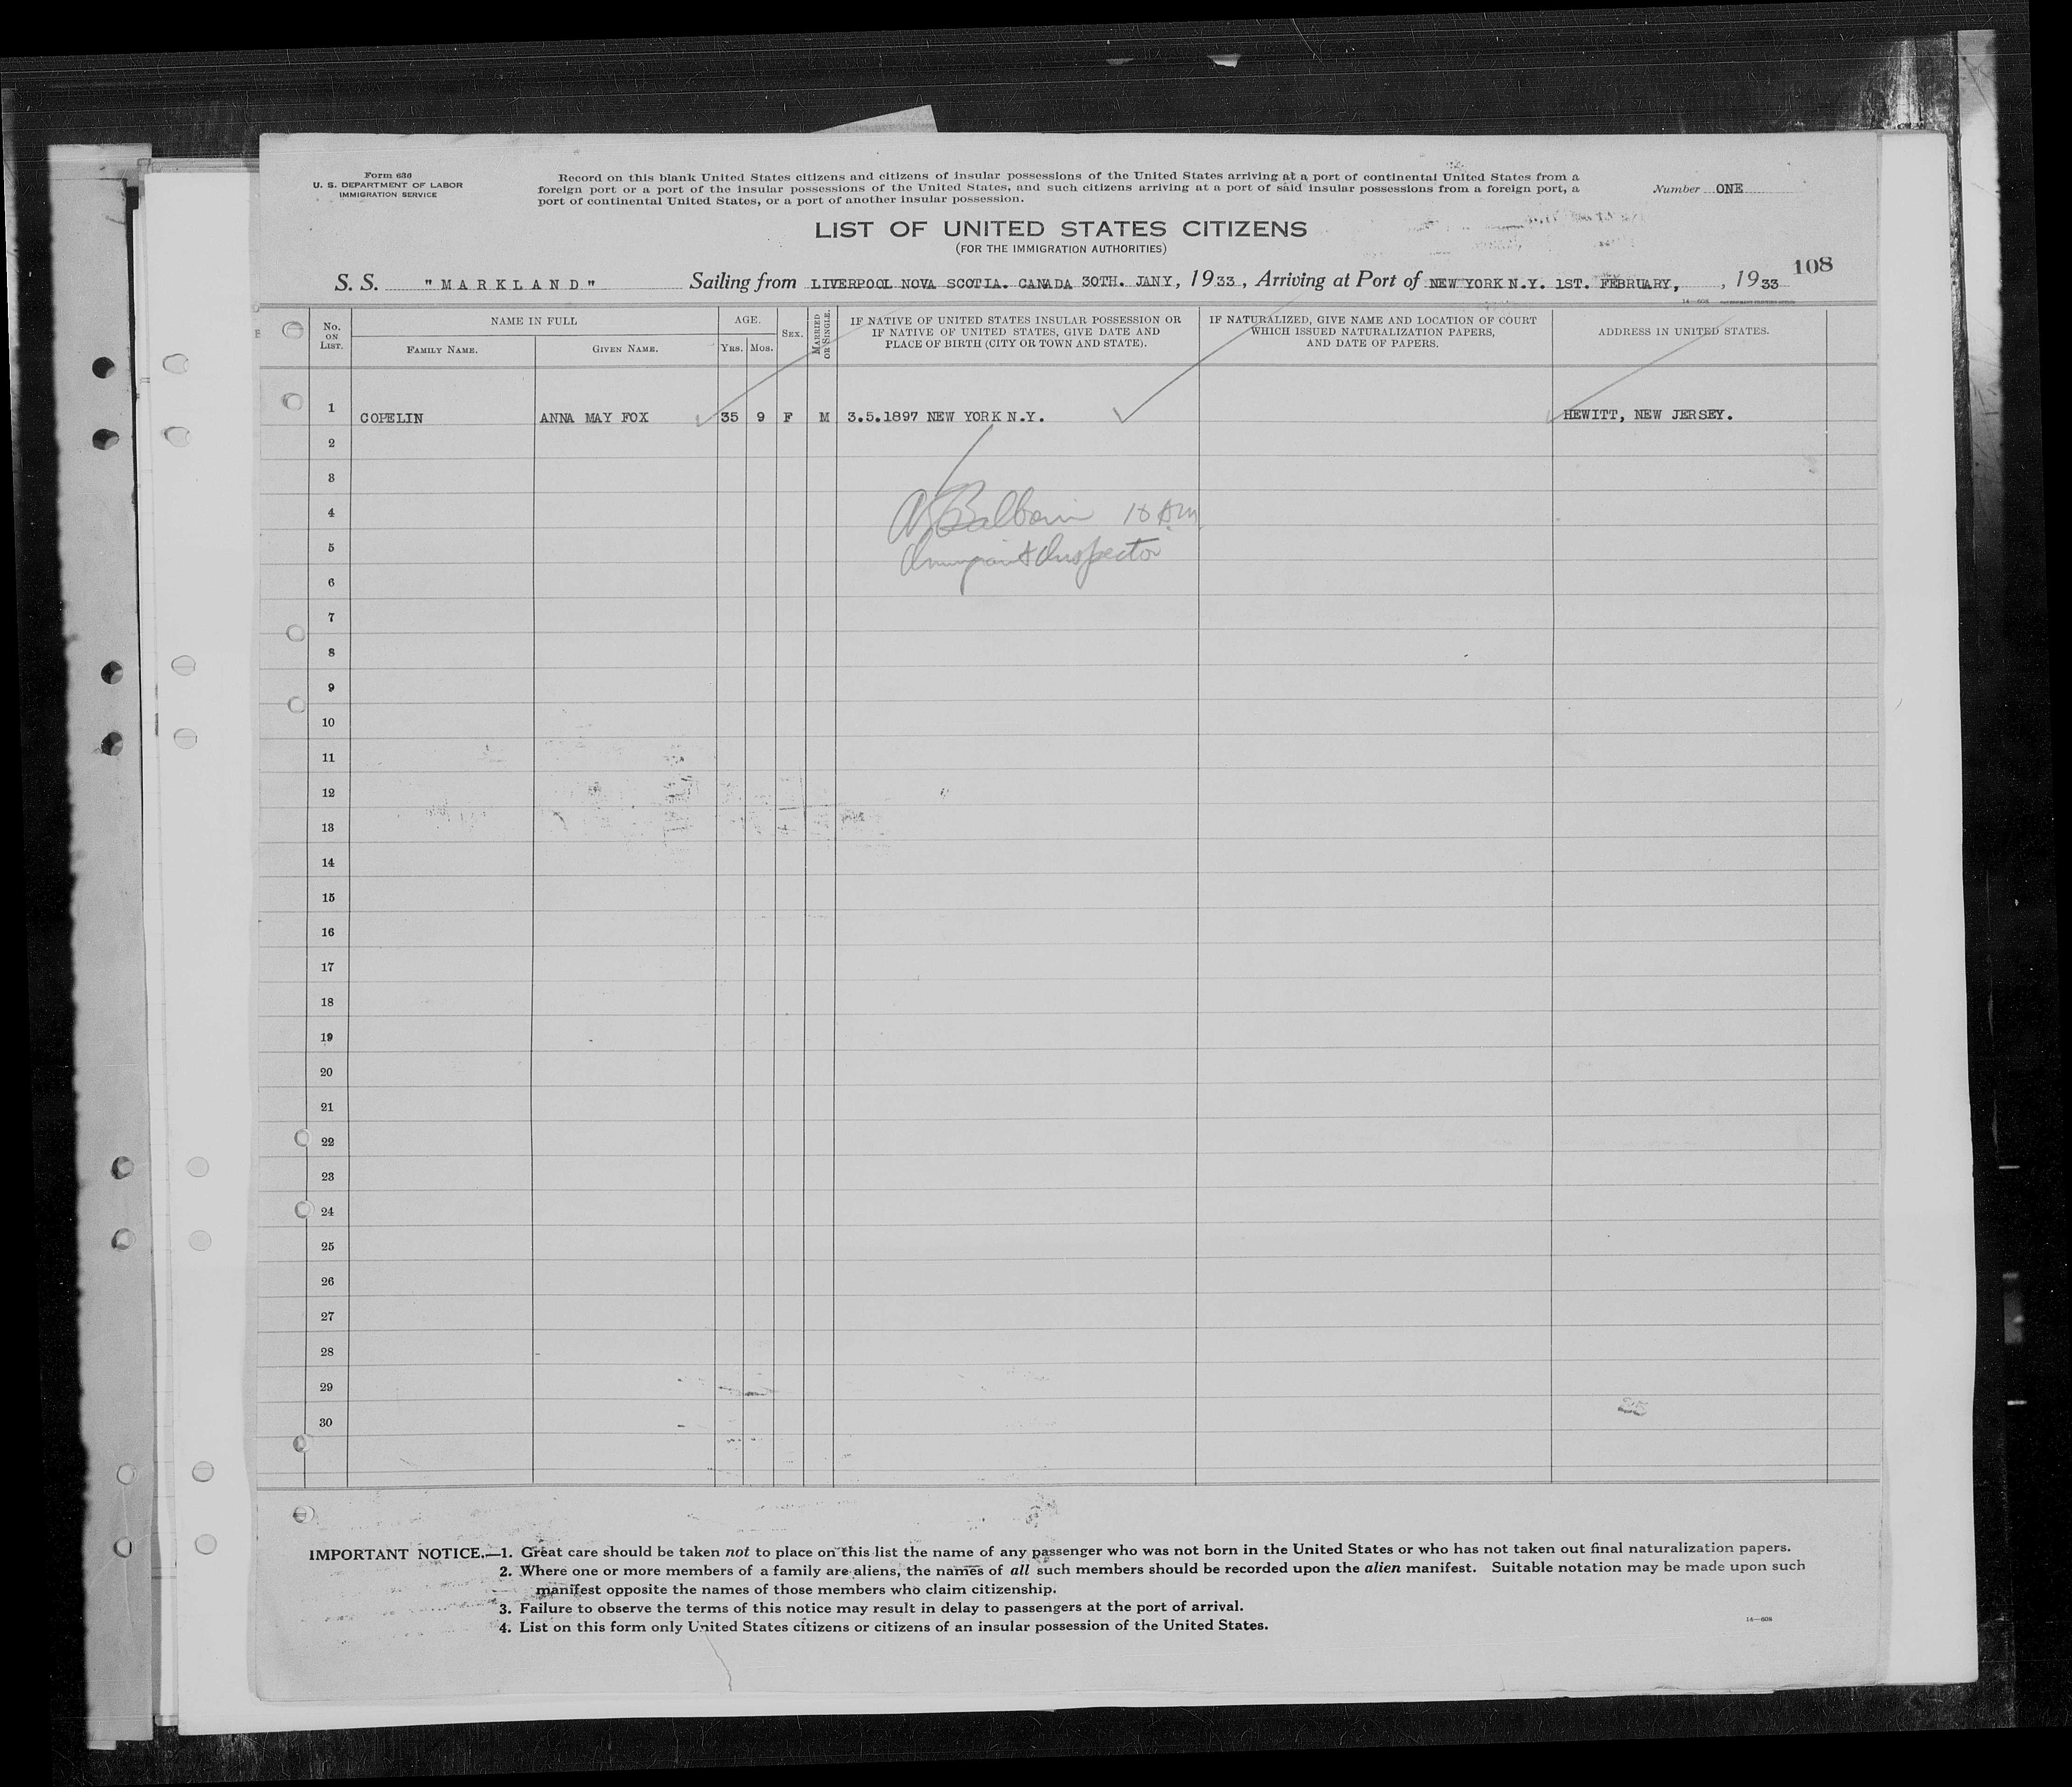 Form 636
U. S. DEPARTMENT OF LABOR
IMMIGRATION SERVICE
Record on this blank United States citizens and citizens of insular possessions of the United States arriving at a port of continental United States from a
foreign port or a port of the insular possessions of the United States, and such citizens arriving at a port of said insular possessions from a foreign port, a
port of continental United States, or a port of another insular possession.
Number ONE
LIST OF UNITED STATES CITIZENS
(FOR THE IMMIGRATION AUTHORITIES)
S. S. "MARKLAND" Sailing from LIVERPOOL NOVA SCOTIA. CANADA 30TH. JANY, 1933, Arriving at Port of NEW YORK N.Y. 1ST. FEBRUARY, , 1933
108
No. ON LIST.
NAME IN FULL
FAMILY NAME.
GIVEN NAME.
AGE.
YRS.
MOS.
SEX.
MARRIED OR SINGLE.
IF NATIVE OF UNITED STATES INSULAR POSSESSION OR
IF NATIVE OF UNITED STATES, GIVE DATE AND
PLACE OF BIRTH (CITY OR TOWN AND STATE).
IF NATURALIZED, GIVE NAME AND LOCATION OF COURT
WHICH ISSUED NATURALIZATION PAPERS,
AND DATE OF PAPERS.
ADDRESS IN UNITED STATES.
1 COPELIN ANNA MAY FOX 35 9 F M 3.5.1897 NEW YORK N.Y. HEWITT, NEW JERSEY.
2
3
4
5
Immigrant Inspector
6
7
8
9
10
11
12
13
14
15
16
17
18
19
20
21
22
23
24
25
26
27
28
29
30
IMPORTANT NOTICE.—1. Great care should be taken not to place on this list the name of any passenger who was not born in the United States or who has not taken out final naturalization papers.
2. Where one or more members of a family are aliens, the names of all such members should be recorded upon the alien manifest. Suitable notation may be made upon such
manifest opposite the names of those members who claim citizenship.
3. Failure to observe the terms of this notice may result in delay to passengers at the port of arrival.
4. List on this form only United States citizens or citizens of an insular possession of the United States.
14—608